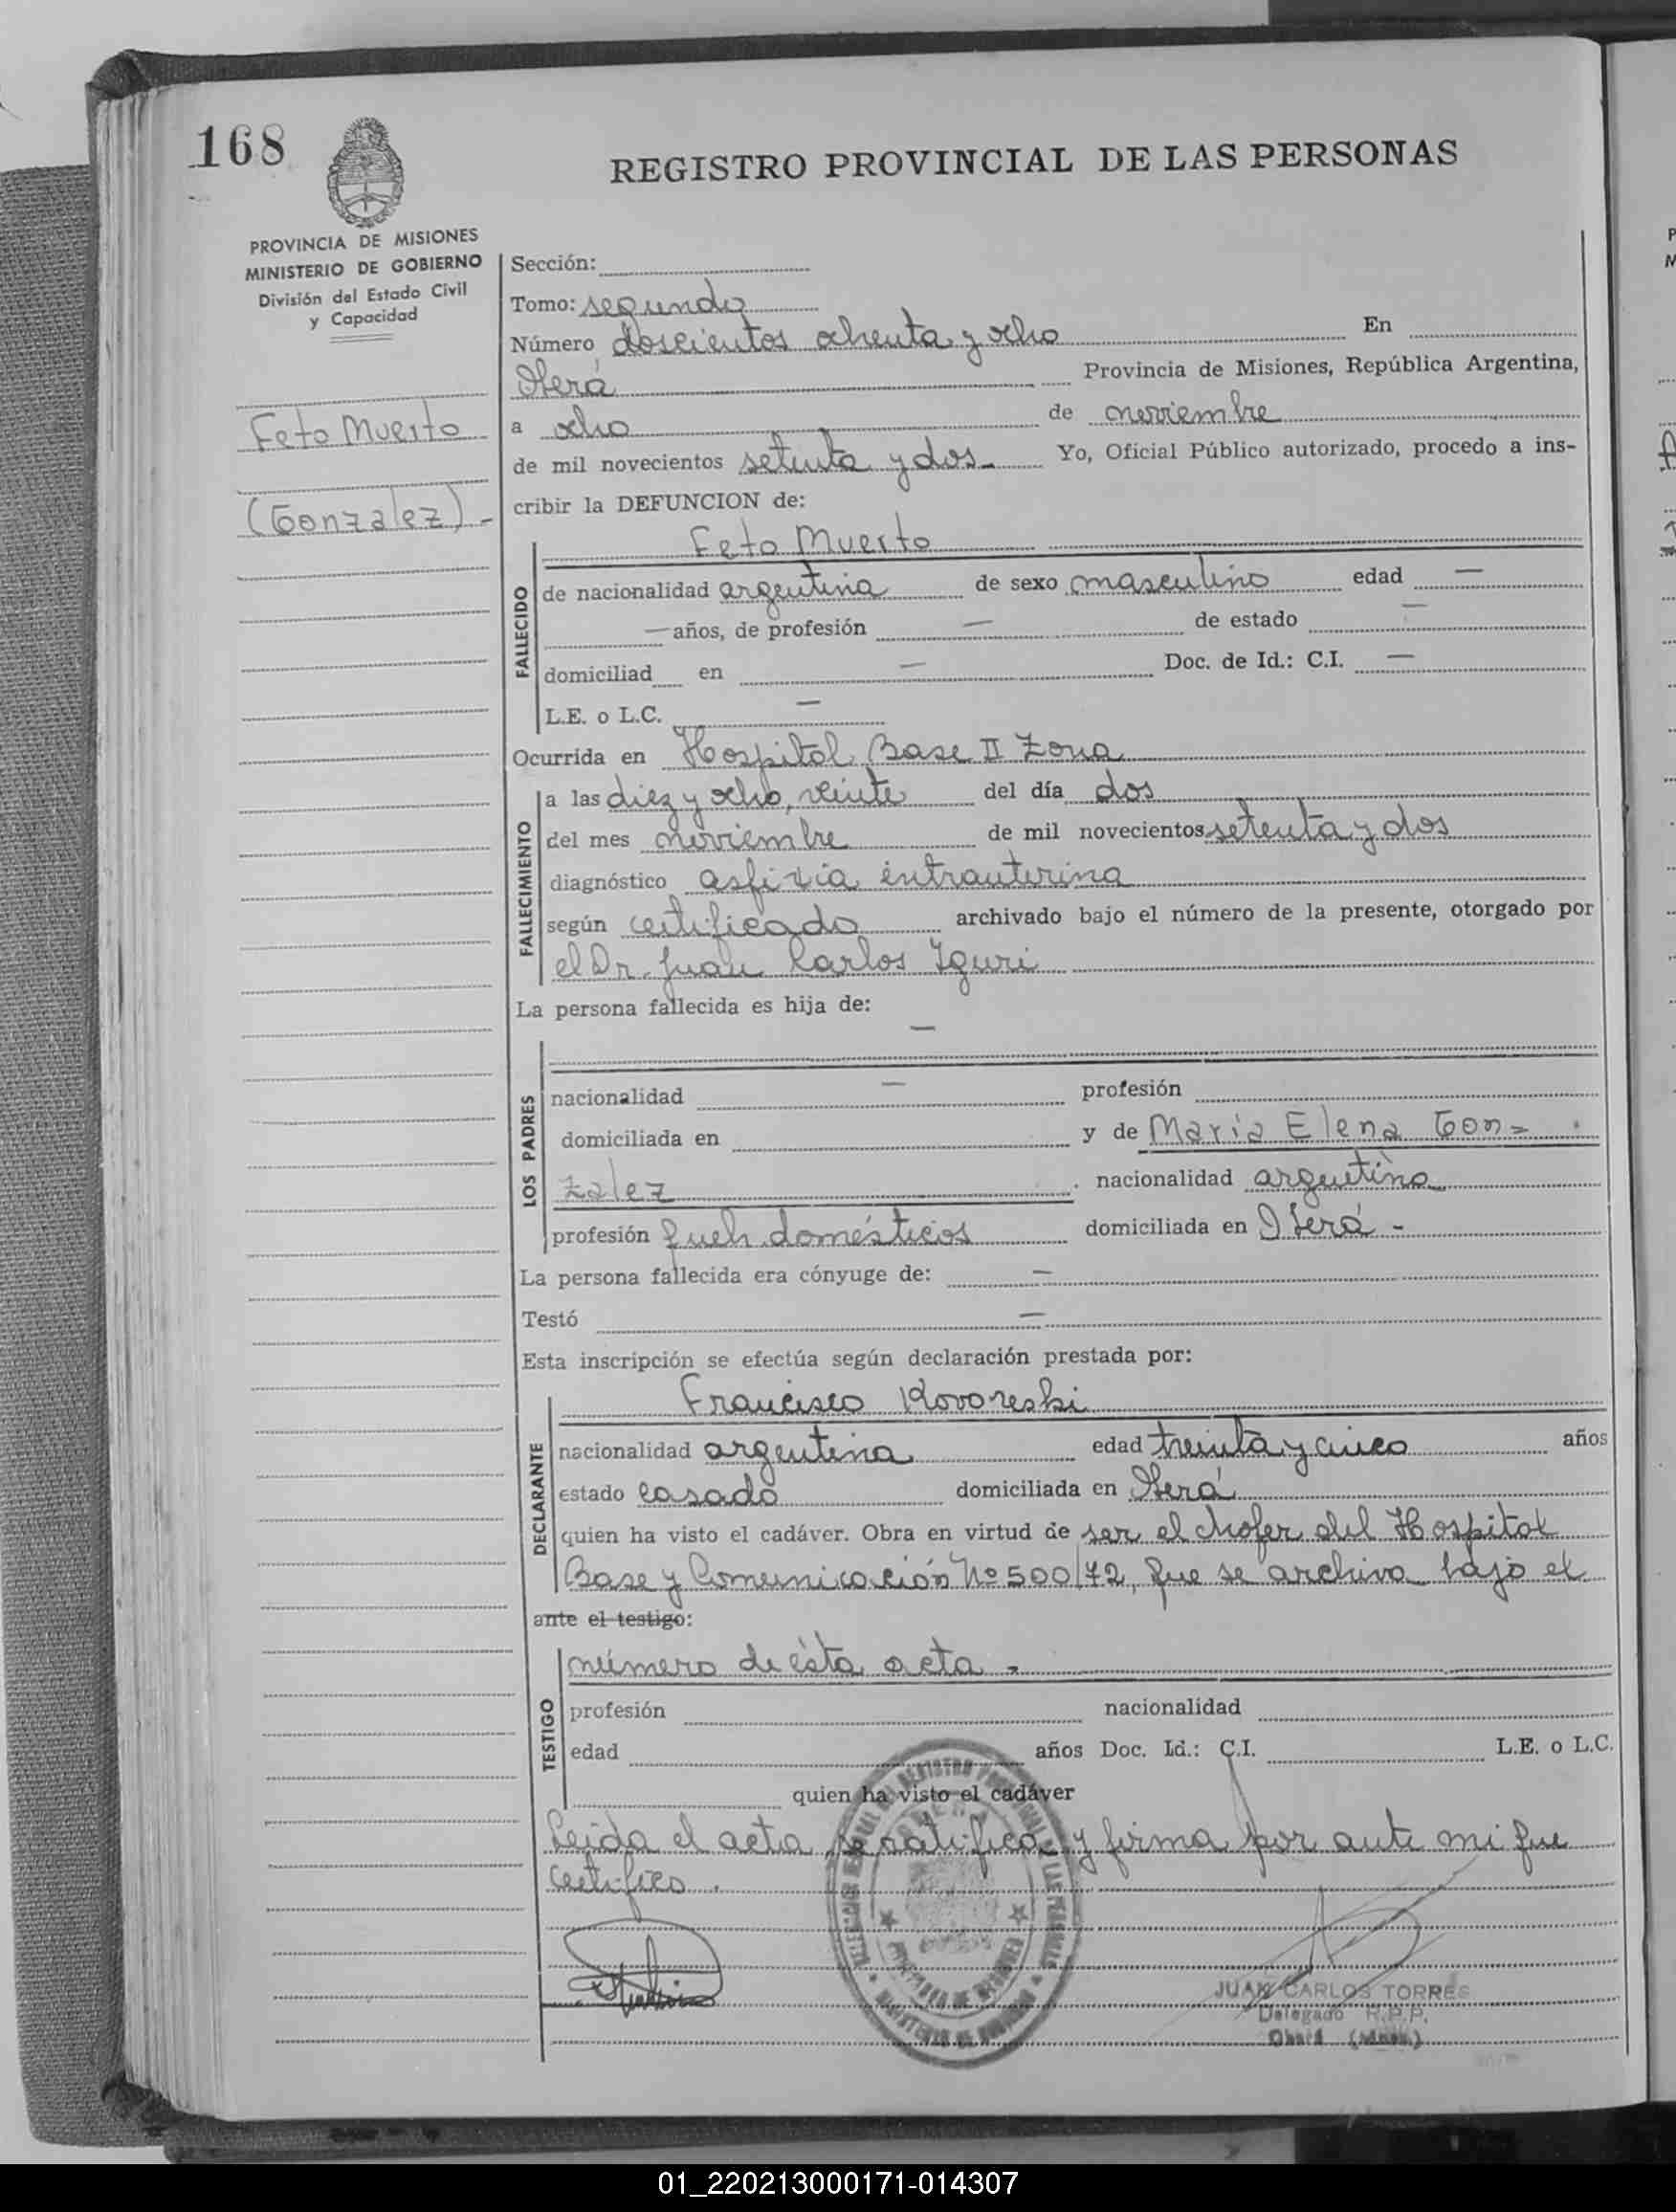 168
REGISTRO PROVINCIAL DE LAS PERSONAS
PROVINCIA DE MISIONES
MINISTERIO DE GOBIERNO
División del Estado Civil
y Capacidad
Feto Muerto
(Gonzalez) -
Sección:
Tomo: segundo
Número doscientos ochenta y ocho En
Oberá Provincia de Misiones, República Argentina,
a ocho de noviembre
de mil novecientos setenta y dos - Yo, Oficial Público autorizado, procedo a ins-
cribir la DEFUNCION de:
FALLECIDO
Feto Muerto
de nacionalidad argentina de sexo masculino edad —
— años, de profesión — de estado —
domiciliad en — Doc. de Id.: C.I. —
L.E. o L.C. —
Ocurrida en Hospital Base II Zona
FALLECIMIENTO
a las diez y ocho, veinte del día dos
del mes noviembre de mil novecientos setenta y dos
diagnóstico asfixia intrauterina
según certificado archivado bajo el número de la presente, otorgado por
el Dr. Juan Carlos Iguri
La persona fallecida es hija de:
LOS PADRES
—
nacionalidad — profesión
domiciliada en y de María Elena Gon=
zalez . nacionalidad argentina
profesión queh. domésticos domiciliada en Oberá -
La persona fallecida era cónyuge de: —
Testó —
Esta inscripción se efectúa según declaración prestada por:
DECLARANTE
Francisco Kovoreski
nacionalidad argentina edad treinta y cinco años
estado casado domiciliada en Oberá
quien ha visto el cadáver. Obra en virtud de ser el chofer del Hospital
Base y Comunicación Nº 500/72, que se archiva bajo el
ante el testigo:
TESTIGO
número de ésta acta -
profesión nacionalidad
edad años Doc. Id.: C.I. L.E. o L.C.
quien ha visto el cadáver
Leida el acta se ratifica y firma por ante mi que
certifico.
JUAN CARLOS TORRES
Delegado R.P.P.
Oberá (Mnes.)
01_220213000171-014307